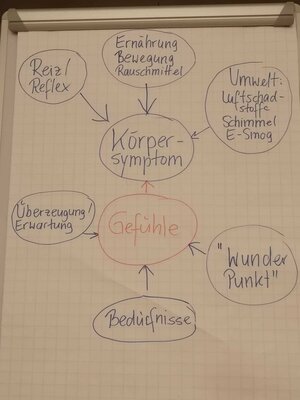 Ernährung
Bewegung
Rauschmittel
Reiz/
Reflex
Umwelt:
Luftschad-
stoffe
Schimmel
E-Smog
Körper-
symptom
Überzeugung/
Erwartung
Gefühle
"Wunder
Punkt"
Bedürfnisse